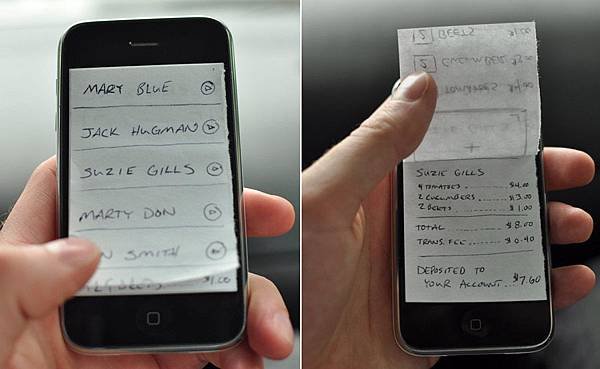 MARY BLUE
JACK HUGMAN
SUZIE GILLS
MARTY DON
N SMITH
$1.00
2 BEETS $1.00
2 CUCUMBER $3.00
TOMATOES $4.00
SUZIE GILLS
+
SUZIE GILLS
4 TOMATOES ........ $4.00
2 CUCUMBERS ....... $3.00
2 BEETS ........... $1.00
TOTAL ......... $8.00
TRANS. FEE .... $0.40
DEPOSITED TO
YOUR ACCOUNT... $7.60